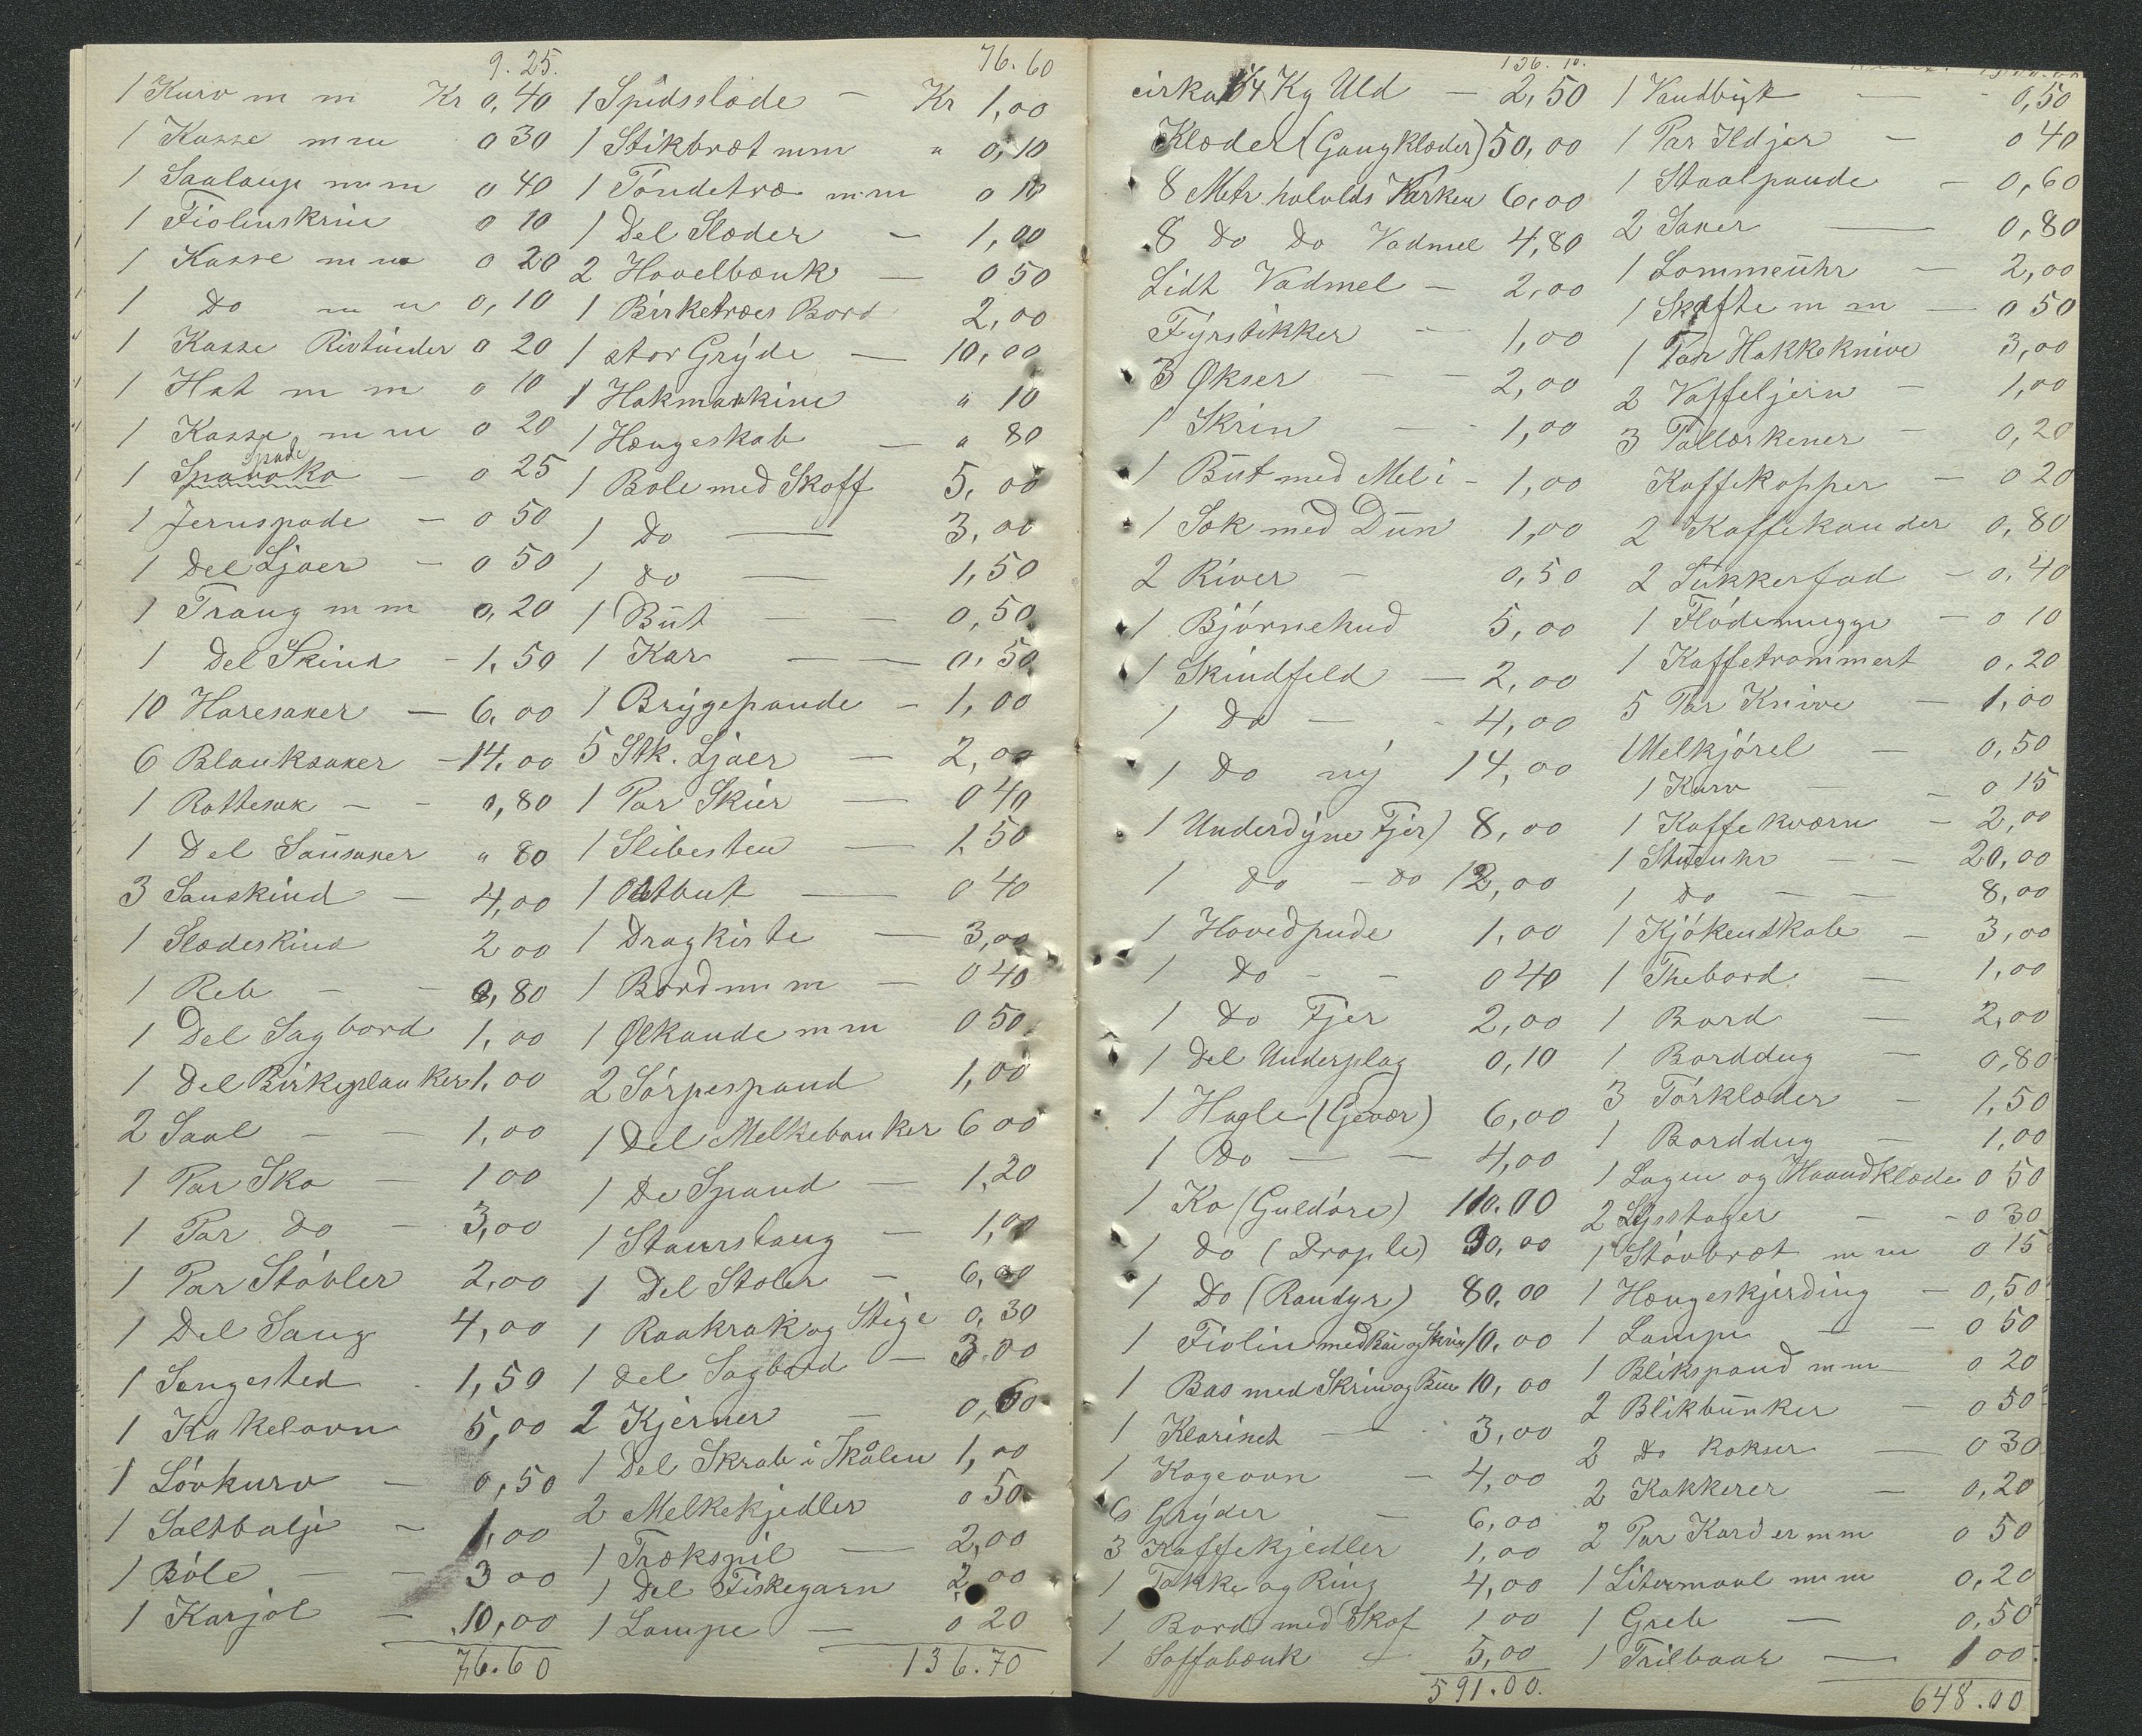 9.25.
1 Kurv m m Kr 0,40
1 Kasse m m 0 30
1 Saulaup m m 0 40
1 Fiolinskrin 0 10
1 Kasse m m 0 20
1 Do m m 0,10
1 Kasse Rivtinder 0 20
1 Hat m m 0 10
1 Kasse m m 0 20
spade
1 0 25
1 Jernspade - 0 50
1 Del Ljaer - 0 50
1 Traug m m 0,20
1 Del Skind - 1,50
10 Haresaxer - 6,00
6 Blanksaxer - 14,00
1 Rottesax - - 0,80
1 Del Sausaxer " 80
3 Sauskind - 4,00
1 Slædeskind 2 00
1 Reb - - 0,80
1 Del Sagbord 1,00
1 Del Birkeplanker 1,00
2 Saal - - 1,00
1 Par Sko - 1 00
1 Par do - 3,00
1 Par Støvler 2,00
1 Del Saug 4,00
1 Sengested - 1,50
1 Kakelovn 5,00
1 Løvkurv - 0,50
1 Saltbalje - 1,00
1 Bøle - - 3 00
1 Karjol - 10,00
76.60
76.60
1 Spidsslæde - Kr 1,00
1 Stikbræt m m " 0,10
1 Tøndetræ m m 0 10
1 Del Slæder - 1,00
2 Høvelbænk - 0 50
1 Birketræes Bord 2,00
1 stor Grýde - 10,00
1 Hakmaskine " 10
1 Hængeskab - " 80
1 Bole med Skoff 5,00
1 Do - 3,00
1 do - 1,50
1 Büt - - 0,50
1 Kar - - 0,50
1 Brýgepande - 1,00
5 Stk. Ljaer - 2,00
1 Par Skier - 0 40
1 Slibesten - 1,50
1 - 0 40
1 Dragkiste - 3,00
1 Bord m m - 0 40
1 Ølkande m m 0 50
2 Sørpespand 1,00
1 Del Melkebunker 6 00
1 De Spand - 1,20
1 Staurstaug - 1,00
1 Del Stoler - 6,00
1 Raakrak og Stige 0,30
1 Del Sagbord - 3.00
2 Kjerner - 0,60
1 Del Skrab i Skålen 1,00
2 Melkekjedler 0 50
1 Trækspil - 2,00
1 Del Fiskegarn 2,00
1 Lampe - 0 20
136.70
136.10.
cirka 1/4 Kg Uld - 2,50
Klæder (Gangklæder) 50,00
8 Metr halvulds Værken 6,00
8 Do Do Vadmel 4,80
Lidt Vadmel - 2,00
Fýrstikker - 1,00
3 Økser - - 2,00
1 Skrin - - 1,00
1 Büt med Mel i - 1,00
1 Sæk med Dün 1,00
2 River - 0,50
1 Bjørnehud 5,00
1 Skindfeld - 2,00
1 Do - - 4,00
1 Do ný 14,00
1 Underdýne Fjer) 8,00
1 do - do 12,00
1 Hovedpude 1,00
1 Do - - 0 40
1 Do Fjer 2,00
1 Del Underplag 0,10
1 Hagle (Gevær) 6,00
1 Do - - 4,00
1 Ko (Guldøre) 110.00
1 Do (Drople) 90,00
1 Do (Randyr) 80.00
1 Fiolin med Büe og Skrin 10.00
1 Bas med Skrin og Büe 10,00
1 Klarinet - 3,00
1 Kogeovn - 4,00
6 Grýder - 6,00
3 Kaffekjedler 1,00
1 Takke og Ring 4,00
1 Bord med Skof 1 00
1 Soffabænk - 5,00
591.00.
1 - 0,50
1 Par Ildjer - 0 40
1 Staalpande - 0,60
2 Saxer - 0,80
1 Lommeühr - 2,00
1 Skafte m m - 0 50
1 Par Hakkeknive 3,00
2 Vaffeljern - 1,00
3 Tallærkener - 0,20
Kaffekopper - 0 20
2 Kaffekander 0,80
2 Sükkerfad - 0,40
1 Flødemugge - 0 10
1 Kaffetrommert 0.20
5 Par Knive - 1,00
1 Melkjørel - 0,50
1 Kurv - - 0 15
1 Kaffekværn - 2,00
1 Stueuhr - - 20,00
1 do - - 8,00
1 Kjøkenskab - 3,00
1 Thebord - 1,00
1 Bord - 2,00
1 Borddug - 0,80
3 Tørklæder - 1,50
1 Borddug - 1,00
1 Lagen og Haandklæde 0 50
2 Lysstager - - 0 30
1 Støvbræt m m 0 15
1 Hængeskjerding - 0,50
1 Lampe - - 0 50
1 Blikspand m m 0 20
2 Blikbünker - 0 50
2 Do kokser - 0 30
2 Kakkerer - 0,20
2 Par Karder m m 0 50
1 Litermaal m m 0,20
1 Greb - 0,50
1 Trilbaar - 1 00
648.00